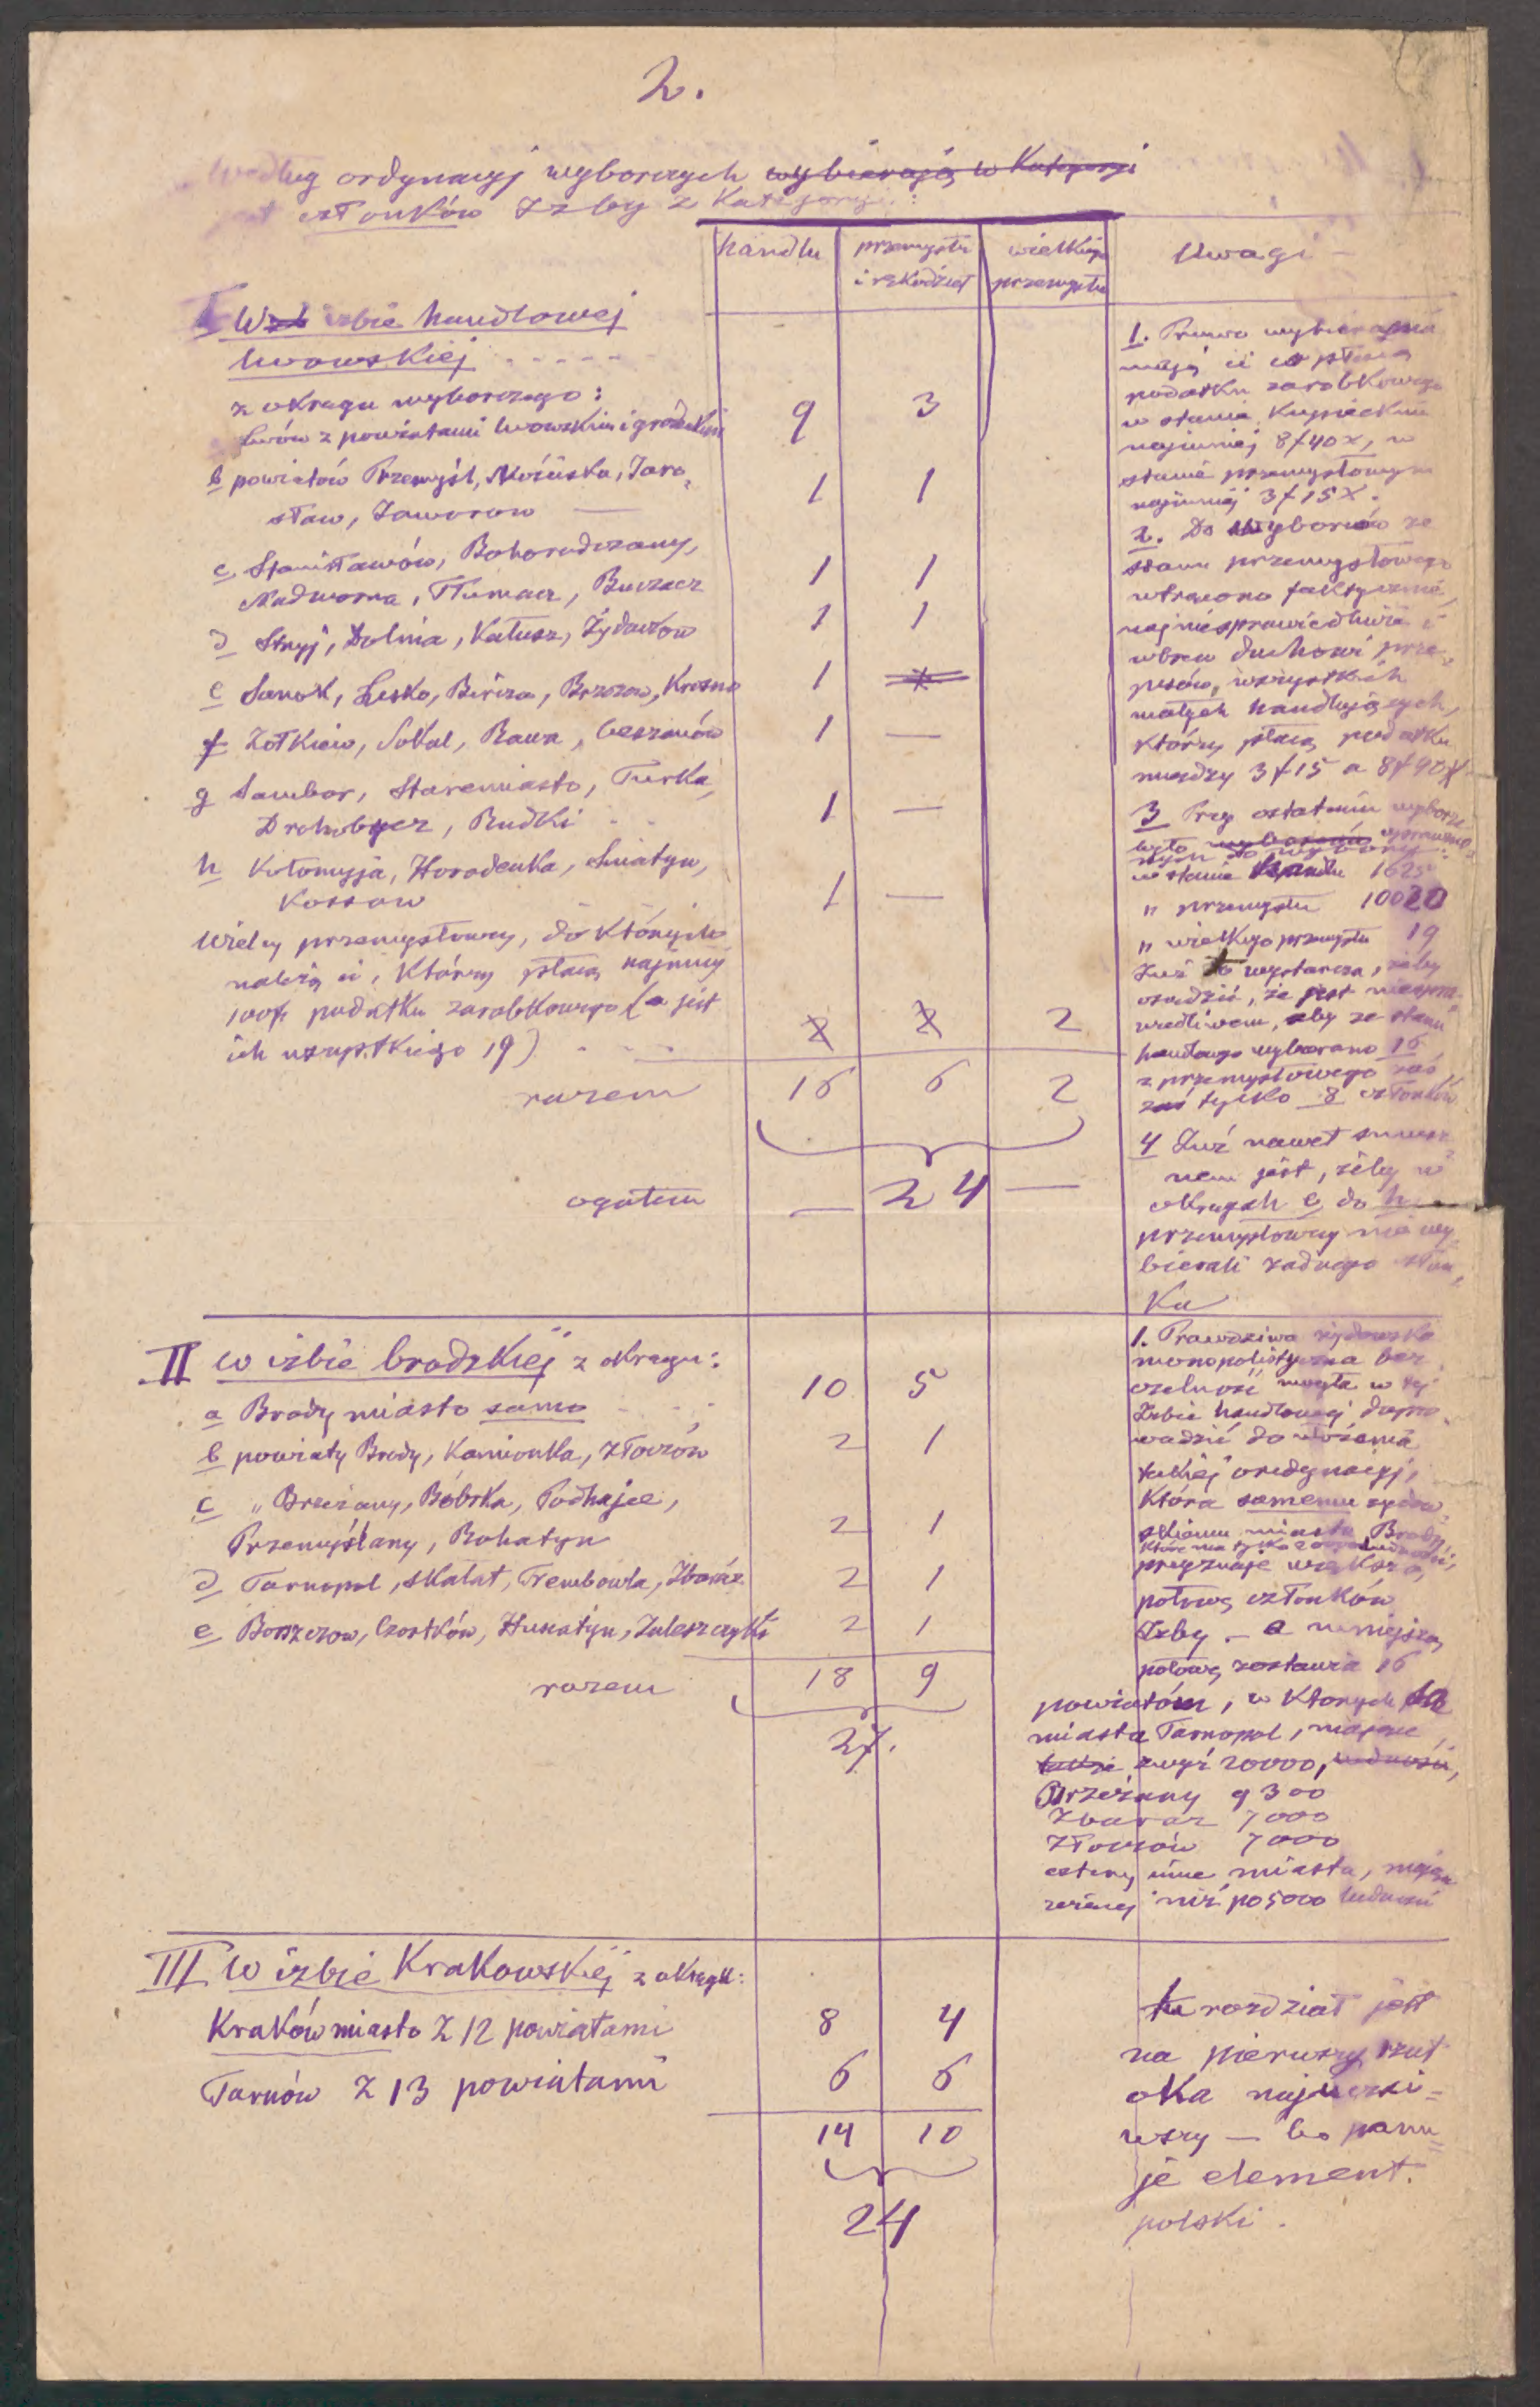 2.
Według ordynacyj wyborczych wybierają w Kategoryi
członków Izby z Kategoryi :
handlu
przemysłu
i rękodzieł
wielkiego
przemysłu
Uwagi –
I W izbie handlowej
lwowskiej - - - - -
z okręgu wyborczego :
Lwów z powiatami lwowskim i gródeckim 9 3
b powiatów Przemyśl, Mościska, Jaro-
sław, Jaworow — 1 1
c Stanisławów, Bohorodczany,
Nadworna, Tłumacz, Buczacz 1 1
d Stryj, Dolina, Kałusz, Żydaczow 1 1
e Sanok, Lesko, Bircza, Brzozow, Krosno 1 —
f Żółkiew, Sokal, Rawa, Cieszanów 1 —
g Sambor, Staremiasto, Turka,
Drohobycz, Rudki - - 1 —
h Kołomyja, Horodenka, Sniatyn,
Kossow 1 —
Wielcy przemysłowcy, do których
należą ci, którzy płacą najmniej
100 fr podatku zarobkowego (a jest
ich wszystkiego 19) - - - 2 2 2
razem 16 6 2
ogółem — 24 —
1. Prawo wybierania
mają ci co płacą
podatku zarobkowego
w stanie kupieckim
najmniej 8 f 40 x, w
stanie przemysłowym
najmniej 3 f 15 x.
2. Do wyborów ze
stanu przemysłowego
wtrącono faktycznie,
najniesprawiedliwiej i
wbrew duchowi prze-
pisów, wszystkich
małych handlujących,
którzy płacą podatku
między 3 f 15 a 8 f 40 x
3 Przy ostatnim wyborze
było wyborców uprawnio-
nych do wyborów :
w stanie handlu 1625
" przemysłu 10020
" wielkiego przemysłu 19
Już to wystarcza, żeby
osądzić, że jest niespra-
wiedliwem, żeby ze stanu
handlowego wybierano 16
z przemysłowego zaś
zaś tylko 8 członków
4 Już nawet
nem jest, żeby w
okręgach e do h
przemysłowcy nie wy-
bierali żadnego człon-
ka
II w izbie brodzkiej z okręgu :
a Brody miasto samo - - - 10 5
b powiaty Brody, Kamionka, Złoczów 2 1
c " Brzeżany, Bóbrka, Podhajce,
Przemyślany, Rohatyn 2 1
d Tarnopol, Skałat, Trembowla, Zbaraż 2 1
e Borszczow, Czortków, Husiatyn, Zaleszczyki 2 1
razem 18 9
27.
1. Prawdziwa żydowska
monopolistyczna bez-
czelność mogła w tej
Izbie handlowej dopro-
wadzić do ułożenia
takiej ordynacyj,
która samemu żydow-
skiemu miastu Brody,
które ma tylko ludności,
przyznaje większą
połowę członków
Izby. – a mniejszą
połowę zostawia 16
powiatóm, w których są
miasta Tarnopol, mające
także zwyż 20000, ludności,
Brzeżany 9300
Zbaraż 7000
Złoczów 7000
cztery inne miasta, mające
więcej niż po 5000 ludności
III W izbie Krakowskiej z okręgu :
Kraków miasto z 12 powiatami 8 4
Tarnów z 13 powiatami 6 6
14 10
24
tu rozdział jest
na pierwszy rzut
oka najuczci=
wszy — bo panu=
je element
polski.